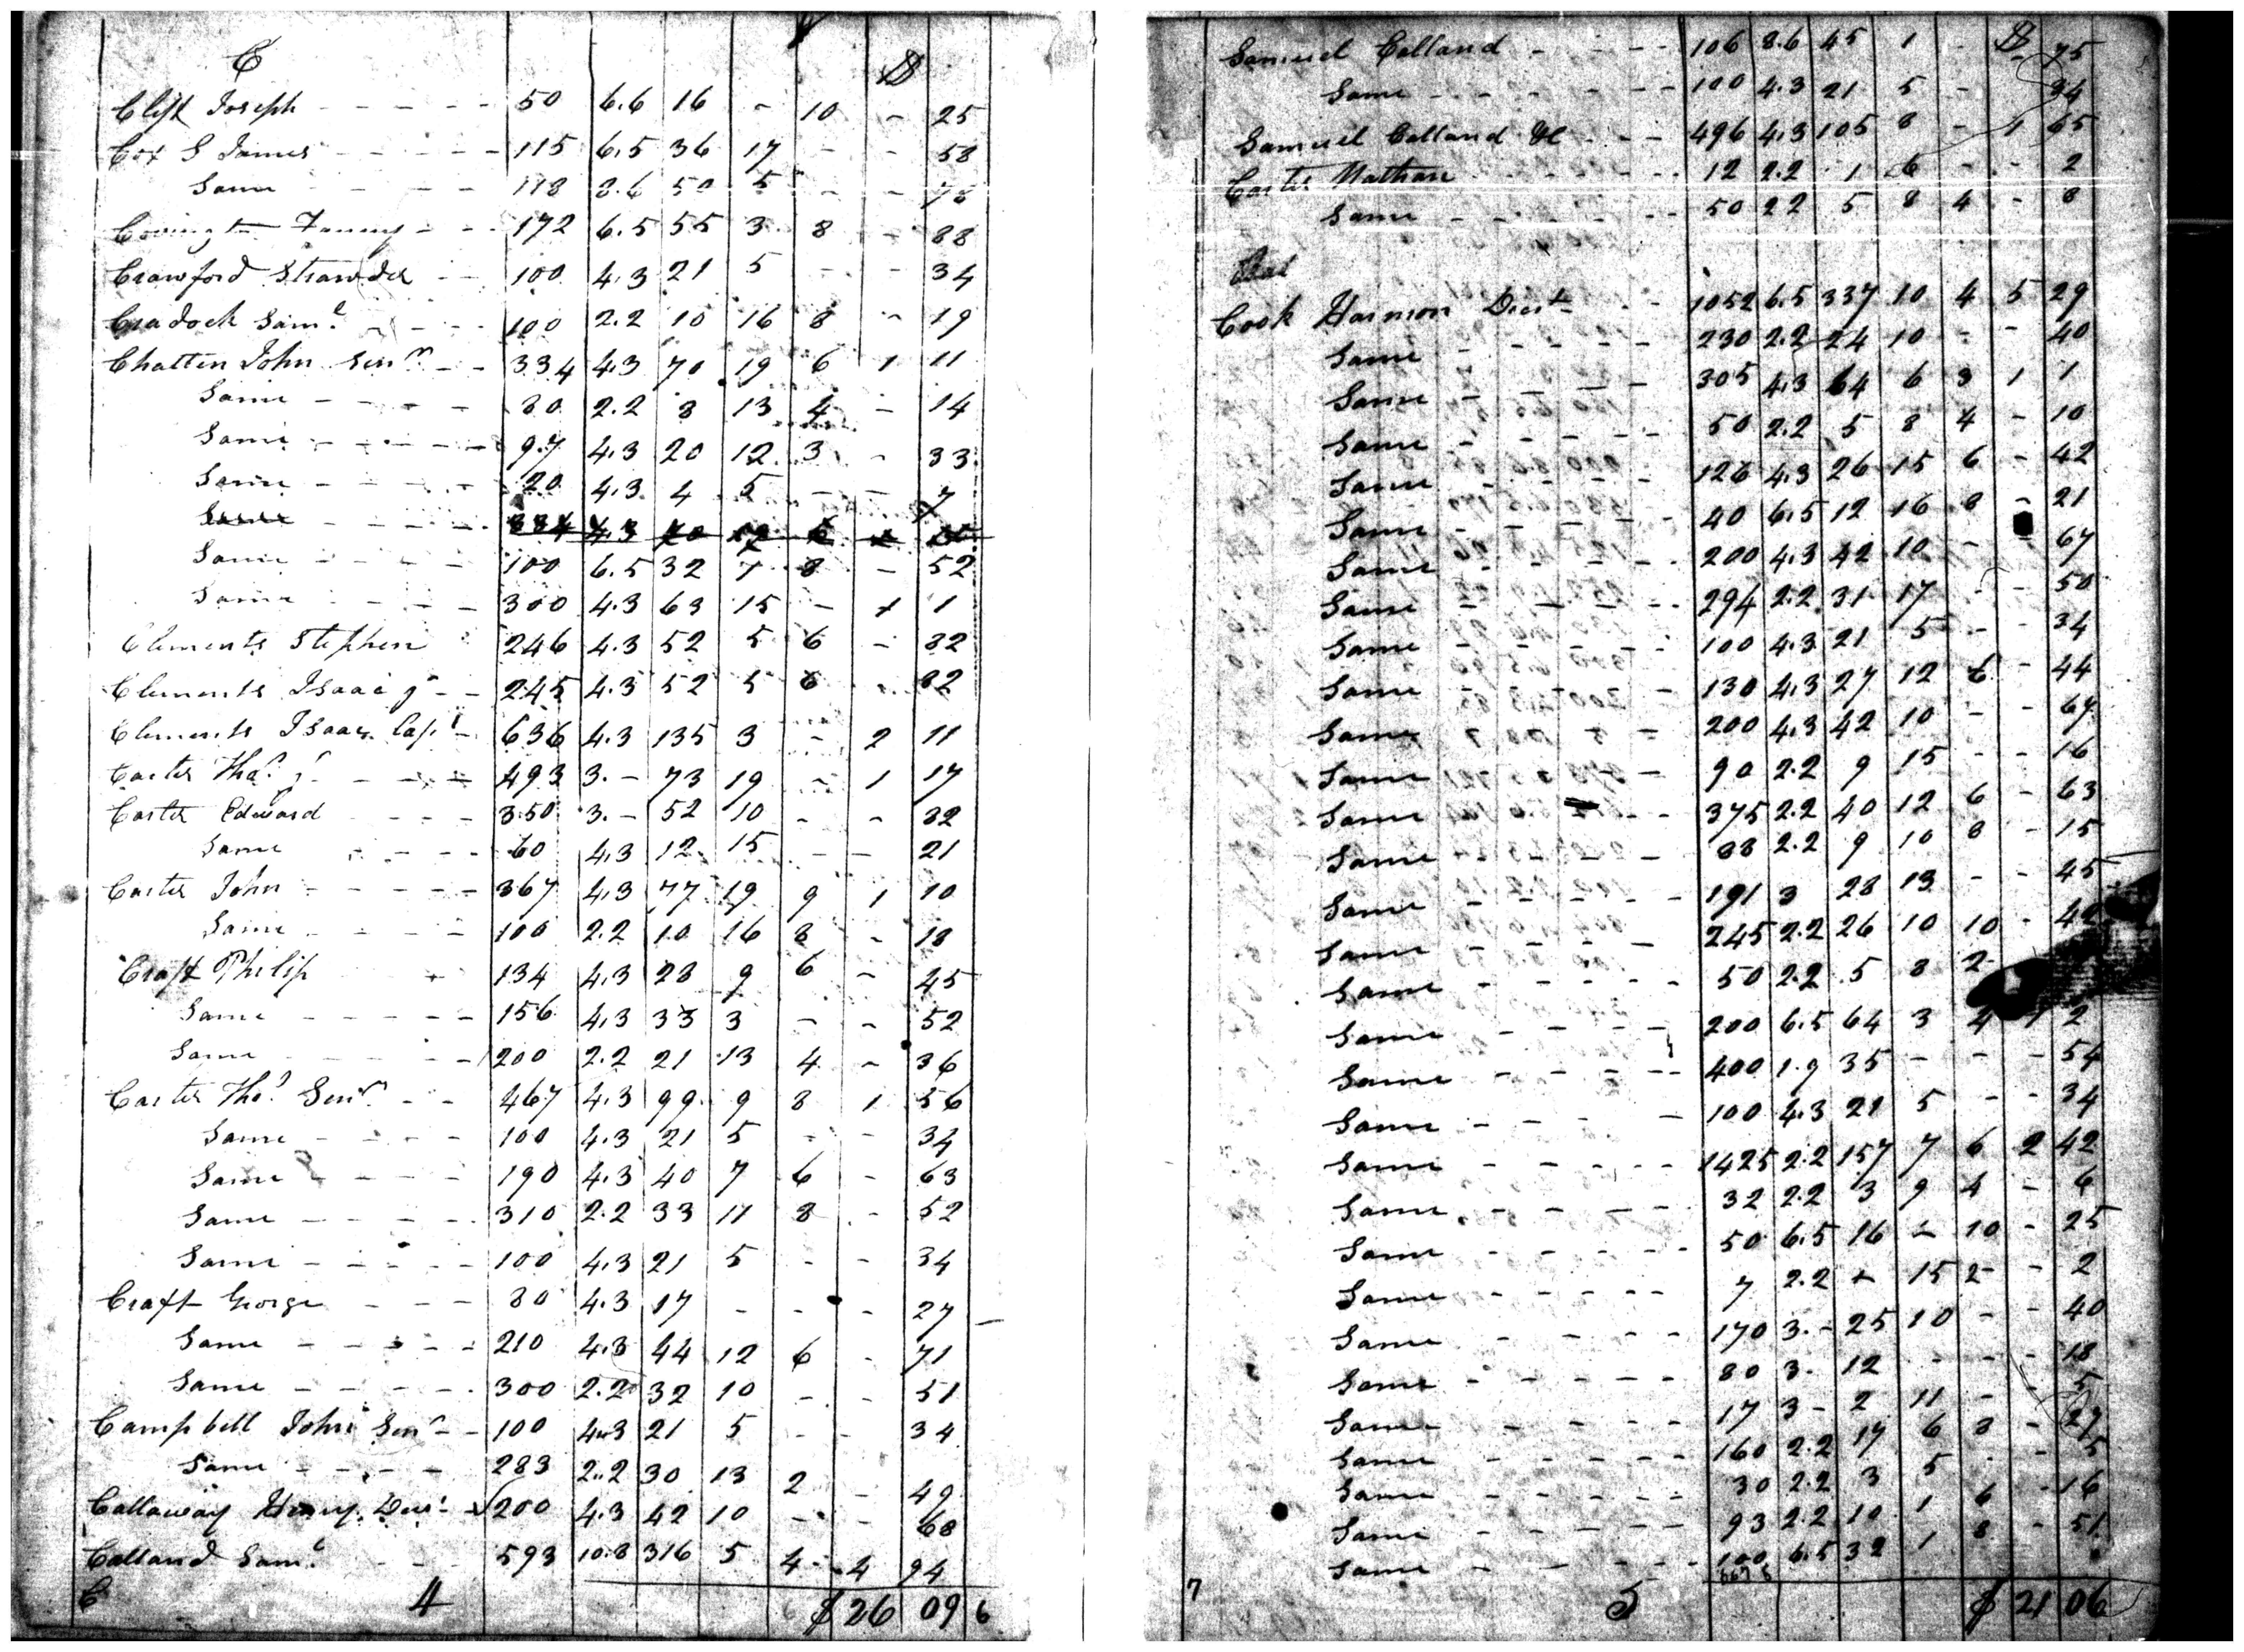 C
D
Clift Joseph - - - - - 50 6.6 16 - 10 - 25
Cox S James - - - - - 115 6.5 36 17 - - 58
Same - - - - 118 8.6 50 5 - - 78
Covington Fanny - - 172 6.5 55 3 8 - 88
Crawford Strawder - - 100 4.3 21 5 - - 34
Cradock Saml - - - 100 2.2 10 16 8 - 19
Chatten John Senr - - 334 4.3 70 19 6 1 11
Same - - - - 80 2.2 8 13 4 - 14
Same - - - - - 97 4.3 20 12 3 - 33
Same - - - - 20 4.3 4 5 - - 7
Same - - - - 334 4.3 70
Same - - - - 100 6.5 32 1 8 - 52
Same - - - - 300 4.3 63 15 - 1 1
Clements Stephen - 246 4.3 52 5 6 - 82
Clements Isaac jr - - 245 4.3 52 5 6 - 82
Clements Isaac Capt - 636 4.3 135 3 - 2 11
Carter Thos jr - - - - 493 3. - 73 19 - 1 17
Carter Edward - - - - 350 3. - 52 10 - - 82
Same - - - - 60 4.3 12 15 - - 21
Carter John - - - - - 367 4.3 77 19 9 1 10
Same - - - - 100 2.2 10 16 8 - 18
Craft Philip 134 4.3 28 9 6 - 45
Same - - - - - 156 4.3 33 3 - - 52
Same - - - - - 200 2.2 21 13 4 - 36
Carter Thos Senr - - 467 4.3 99 9 8 1 56
Same - - - - 100 4.3 21 5 - - 34
Same - - - - 190 4.3 40 7 6 - 63
Same - - - - - 310 2.2 33 11 8 - 52
Same - - - - - 100 4.3 21 5 - - 34
Craft George - - - 80 4.3 17 - - - 27
Same - - - - - 210 4.3 44 12 6 - 71
Same - - - - - 300 2.2 32 10 - - 51
Campbell John Senr - - 100 4.3 21 5 - - 34
Same - - - - 283 2.2 30 13 2 - 49
Callaway Henry Decd - 200 4.3 42 10 - - 68
Calland Saml - - - 593 10.8 316 5 4 4 94
C 4 $ 26 09 6
D
Samuel Calland - - - - 106 8.6 45 1 - - 75
Same - - - - - - - 100 4.3 21 5 - 34
Samuel Calland &c - - - 496 4.3 105 8 - 1 65
Carter Nathan - - - - - - 12 2.2 1 6 - - 2
Same - - - - - - 50 2.2 5 8 4 - 8
Cook Harmon Decd - - 1052 6.5 337 10 4 5 29
Same - - - - - 230 2.2 24 10 - - 40
Same - - - - - 305 4.3 64 6 3 1 1
Same - - - - - 50 2.2 5 8 4 - 10
Same - - - - - 126 4.3 26 15 6 - 42
Same - - - - - 40 6.5 12 16 8 - 21
Same - - - - - 200 4.3 42 10 - - 67
Same - - - - - 294 2.2 31 17 - - 50
Same - - - - - 100 4.3 21 5 - - 34
Same - - - - - 130 4.3 27 12 6 - 44
Same - - - - 200 4.3 42 10 - - 67
Same - - - - 90 2.2 9 15 - - 16
Same - - - - 375 2.2 40 12 6 - 63
Same - - - - - 88 2.2 9 10 8 - 15
Same - - - - - 191 3 28 13 - - 45
Same - - - - - 245 2.2 26 10 10 - 42
Same - - - - - 50 2.2 5 8 2
Same - - - - - 200 6.5 64 3 4 1 2
Same - - - - - 400 1.9 35 - - - 54
Same - - - - - 100 4.3 21 5 - - 34
Same - - - - - 1425 2.2 157 7 6 2 42
Same - - - - - 32 2.2 3 9 4 - 6
Same - - - - - 50 6.5 16 - 10 - 25
Same - - - - - 7 2.2 - 15 2 - 2
Same - - - - - 170 3. - 25 10 - - 40
Same - - - - - 80 3. 12 - - - 18
Same - - - - - 17 3 - 2 11 - - 5
Same - - - - - 160 2.2 17 6 8 - 27
Same - - - - - 30 2.2 3 5 - - 5
Same - - - - - 93 2.2 10 1 6 - 16
Same - - - - - 100 6.5 32 1 8 - 51
7 5 $ 21 06